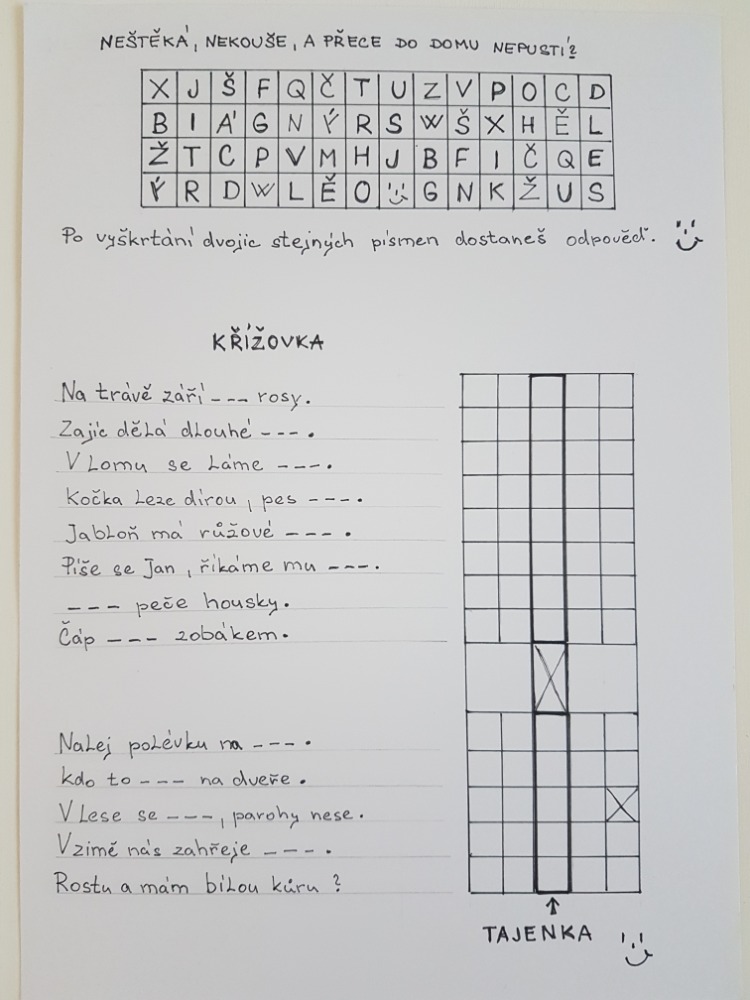 NEŠTĚKÁ, NEKOUŠE, A PŘECE DO DOMU NEPUSTÍ?
X J Š F Q Č T U Z V P O C D
B I Á G N Ý R S W Š X H Ě L
Ž T C P V M H J B F I Č Q E
Ý R D W L Ě O G N K Ž U S
Po vyškrtání dvojic stejných písmen dostaneš odpověď.
KŘÍŽOVKA
Na trávě září --- rosy.
Zajíc dělá dlouhé ---.
V lomu se láme ---.
Kočka leze dírou, pes ---.
Jabloň má růžové ---.
Píše se Jan, říkáme mu ---.
--- peče housky.
Čáp --- zobákem.
Nalej polévku na ---.
kdo to --- na dveře.
V lese se ---, parohy nese.
V zimě nás zahřeje ---.
Rostu a mám bílou kůru?
TAJENKA